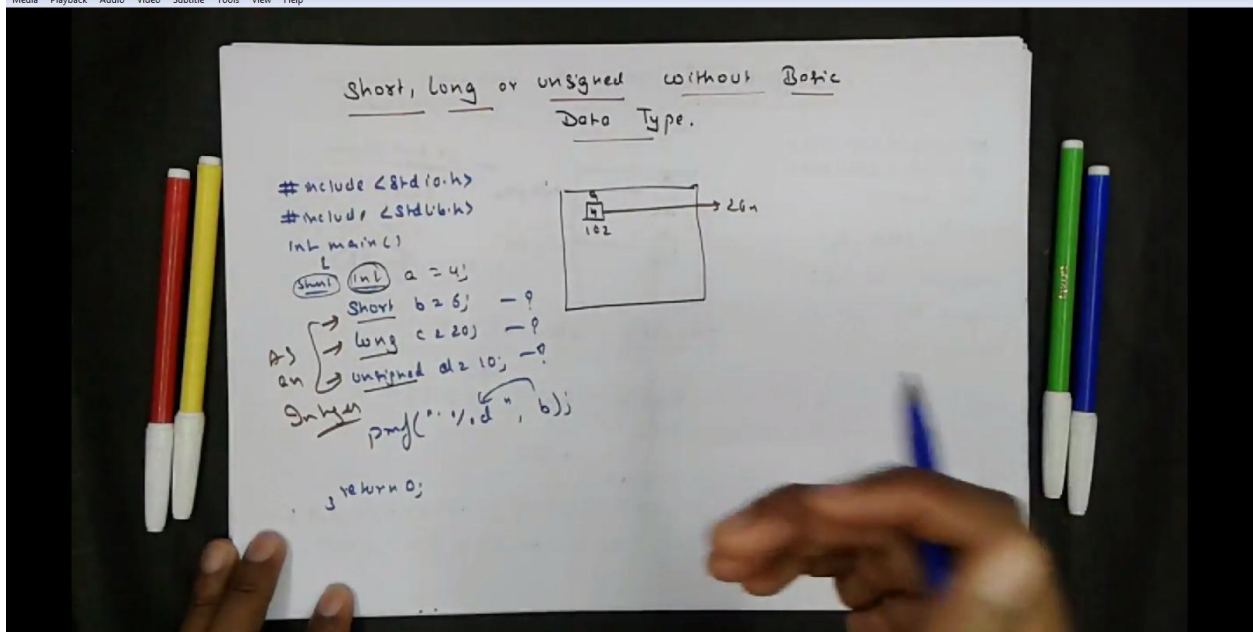 Media Playback Audio Video Subtitle Tools View Help
Short, Long or unsigned without Basic
Data Type.
#include <stdio.h>
#include <stdlib.h>
int main()
{
short int a = 4;
Short b = 6; - ?
Long c = 20; - ?
unsigned d = 10; - ?
As
an
Integer
printf(" %d ", b);
return 0;
}
a
4
102